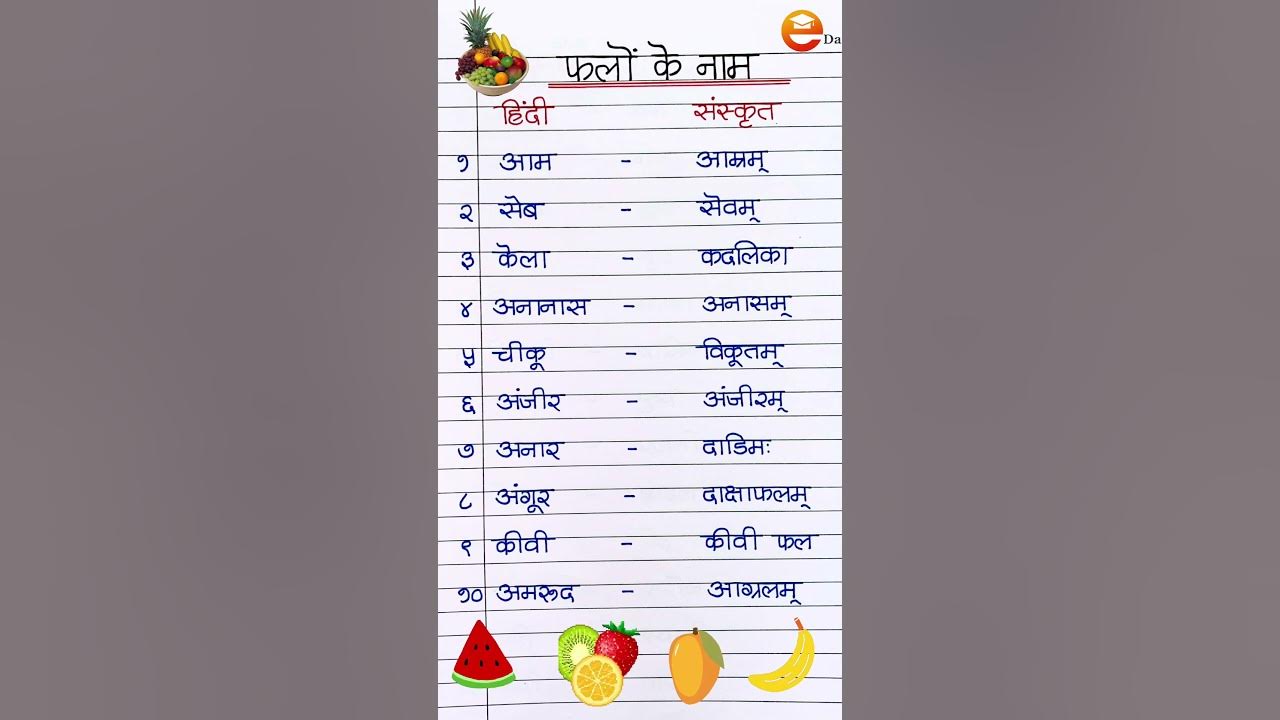 Da
फलों के नाम
हिंदी संस्कृत
१ आम - आम्रम्
२ सेब - सेवम्
३ केला - कदलिका
४ अनानास - अनासम्
५ चीकू - विकूतम्
६ अंजीर - अंजीरम्
७ अनार - दाडिमः
८ अंगूर - दाक्षाफलम्
९ कीवी - कीवी फल
१० अमरूद - आग्रलम्